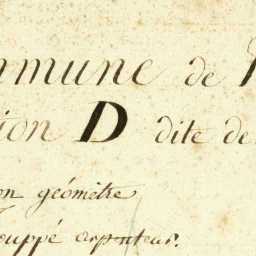 mmune de
ion D dite de
on géomètre
euppé arpenteur.